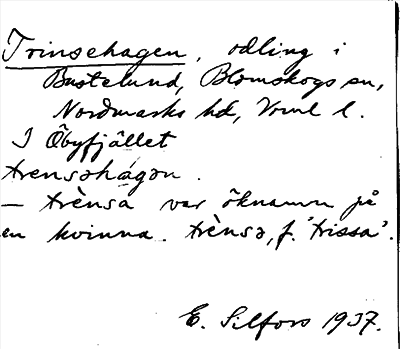 Trinsehagen, odling i
Bastelund, Blomskogs sn,
Nordmarks hd, Vrml l.
I Öbyfjället
trensəhágən.
— trènsa var öknamn på
en kvinna. trènsə, f. 'trissa'.
E. Silfors 1937.